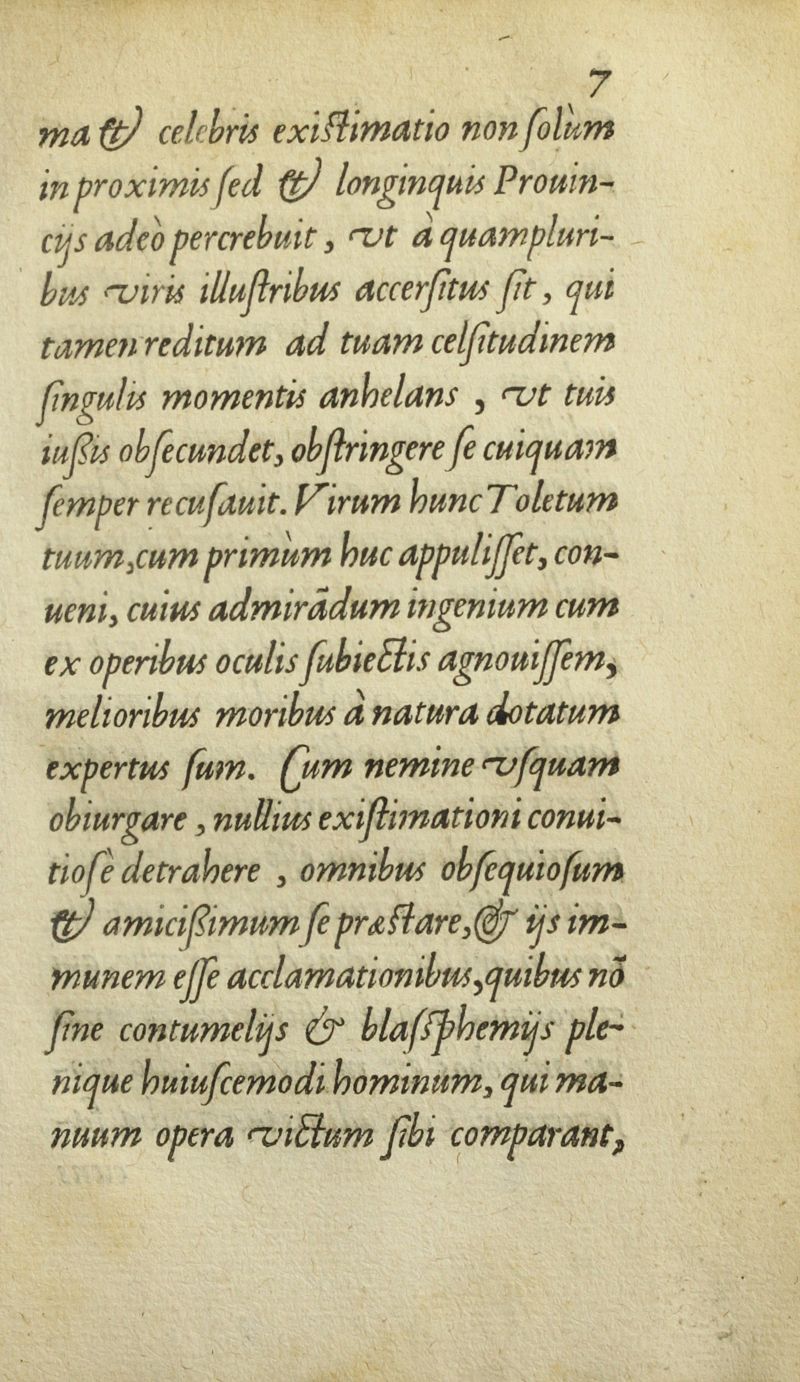 7
ma & celebris existimatio non solùm
in proximis sed & longinquis Prouin-
cijs adeò percrebuit, vt à quampluri-
bus viris illustribus accersitus sit, qui
tamen reditum ad tuam celsitudinem
singulis momentis anhelans , vt tuis
iussis obsecundet, obstringere se cuiquam
semper recusauit. Virum hunc Toletum
tuum,cum primùm huc appulisset, con-
ueni, cuius admirãdum ingenium cum
ex operibus oculis subiectis agnouissem,
melioribus moribus à natura dotatum
expertus sum. Cum nemine vsquam
obiurgare , nullius existimationi conui-
tiosè detrahere , omnibus obsequiosum
& amicissimum se præstare,& ijs im-
munem esse acclamationibus,quibus nõ
sine contumelijs & blassphemijs ple-
nique huiuscemodi hominum, qui ma-
nuum opera victum sibi comparant,